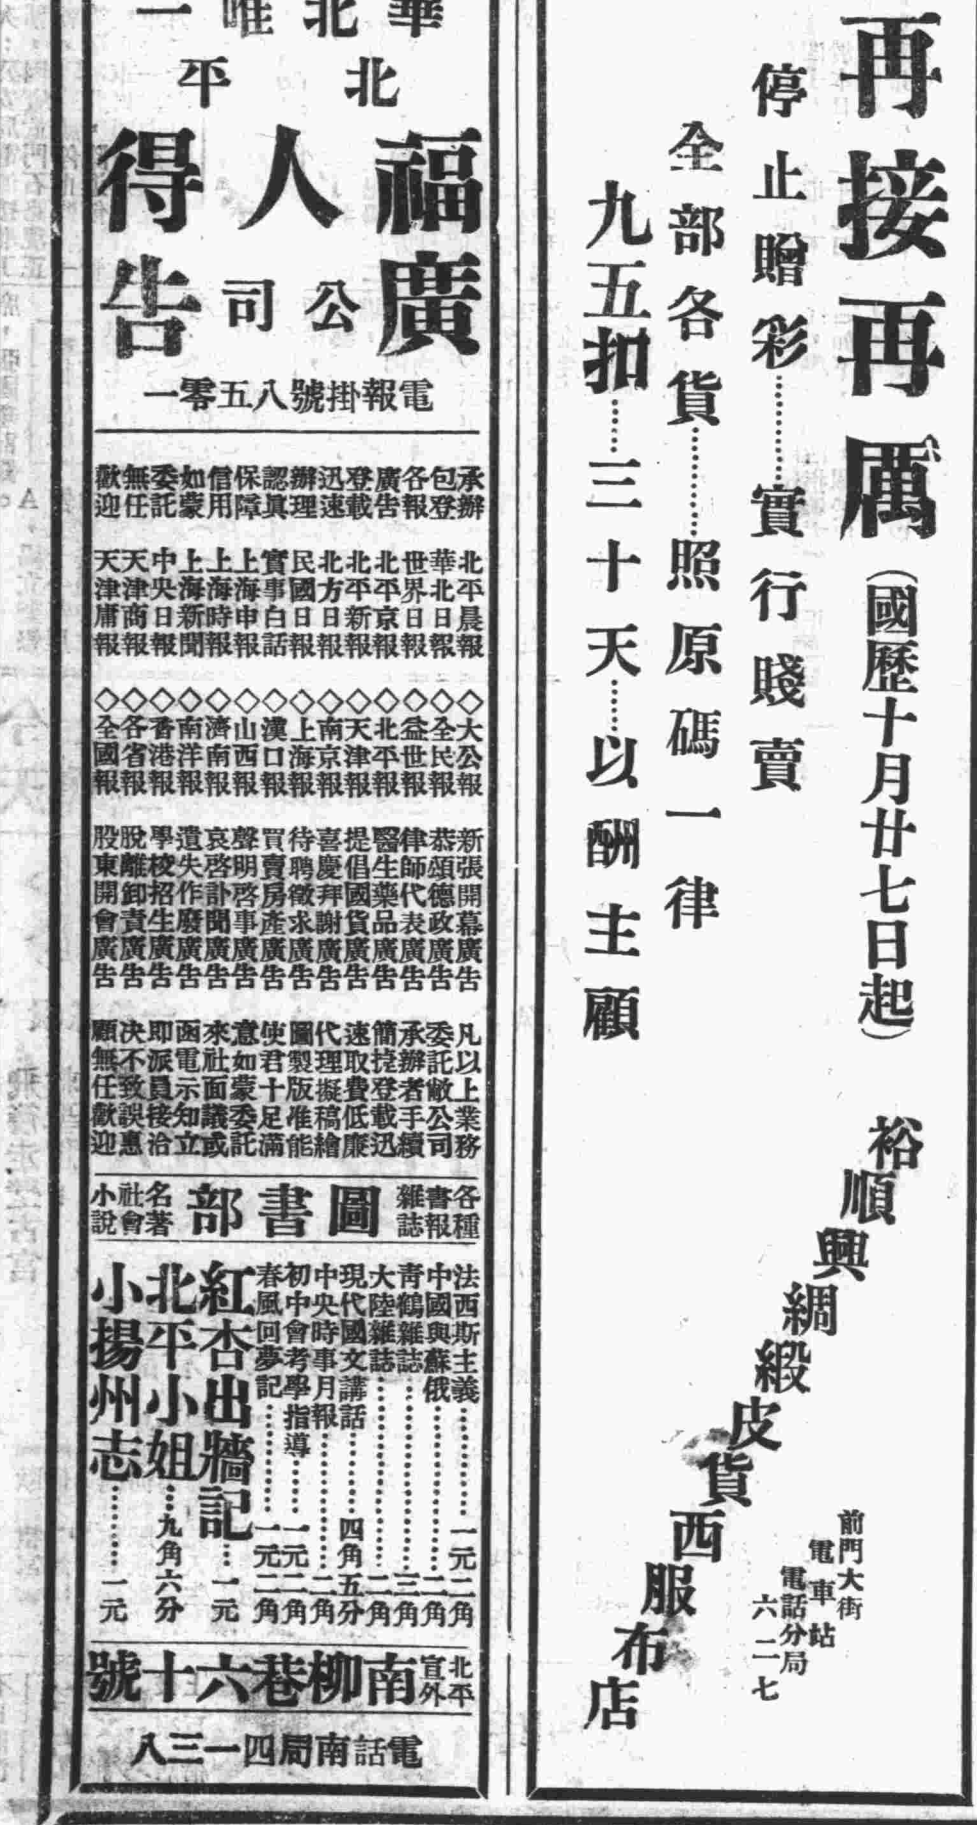 再接再厲(國歷十月廿七日起)
停止贈彩………實行賤賣
全部各貨………照原碼一律
九五扣……三十天……以酬主顧
裕順興綢緞皮貨西服布店
前門大街
電車站
電話分局
六二七
華北唯一
北平
福人得
廣公司告
電報掛號八五零一
承辦
包登
各報
廣告
登載
迅速
辦理
認眞
保障
信用
如蒙
委託
無任
歡迎
北平晨報
華北日報
世界日報
北平京報
北平新報
北方日報
民國日報
實事白話
上海申報
上海時報
上海新聞
中央日報
天津商報
天津庸報
◇◇◇◇◇◇◇◇◇◇◇◇◇◇
大公報
全民報
益世報
北平報
天津報
南京報
上海報
漢口報
山西報
濟南報
南洋報
香港報
各省報
全國報
新張開幕廣告
恭頌德政廣告
律師代表廣告
醫生藥品廣告
提倡國貨廣告
喜慶拜謝廣告
待聘徵求廣告
買賣房產廣告
聲明啓事廣告
哀啓訃聞廣告
遺失作廢廣告
學校招生廣告
脫離卸責廣告
股東開會廣告
凡以上業務
委託敝公司
承辦者手續
簡捷登載迅
速取費低廉
代理擬稿繪
圖製版准能
使君十足滿
意如蒙委託
來社面議或
函電示知立
即派員接洽
決不致誤惠
顧無任歡迎
各種
書報
雜誌
圖書部
名著
社會
小說
法西斯主義………一元二角
中國與蘇俄………二角
青鶴雜誌………三角
大陸雜誌………二角
現代國文講話………四角五分
中央時事月報………二角
初中會考學指導……一元二角
春風回夢記………一元二角
紅杏出牆記…一元
北平小姐…九角六分
小揚州志………一元
北平
宣外
南柳巷六十號
電話南局四一三八